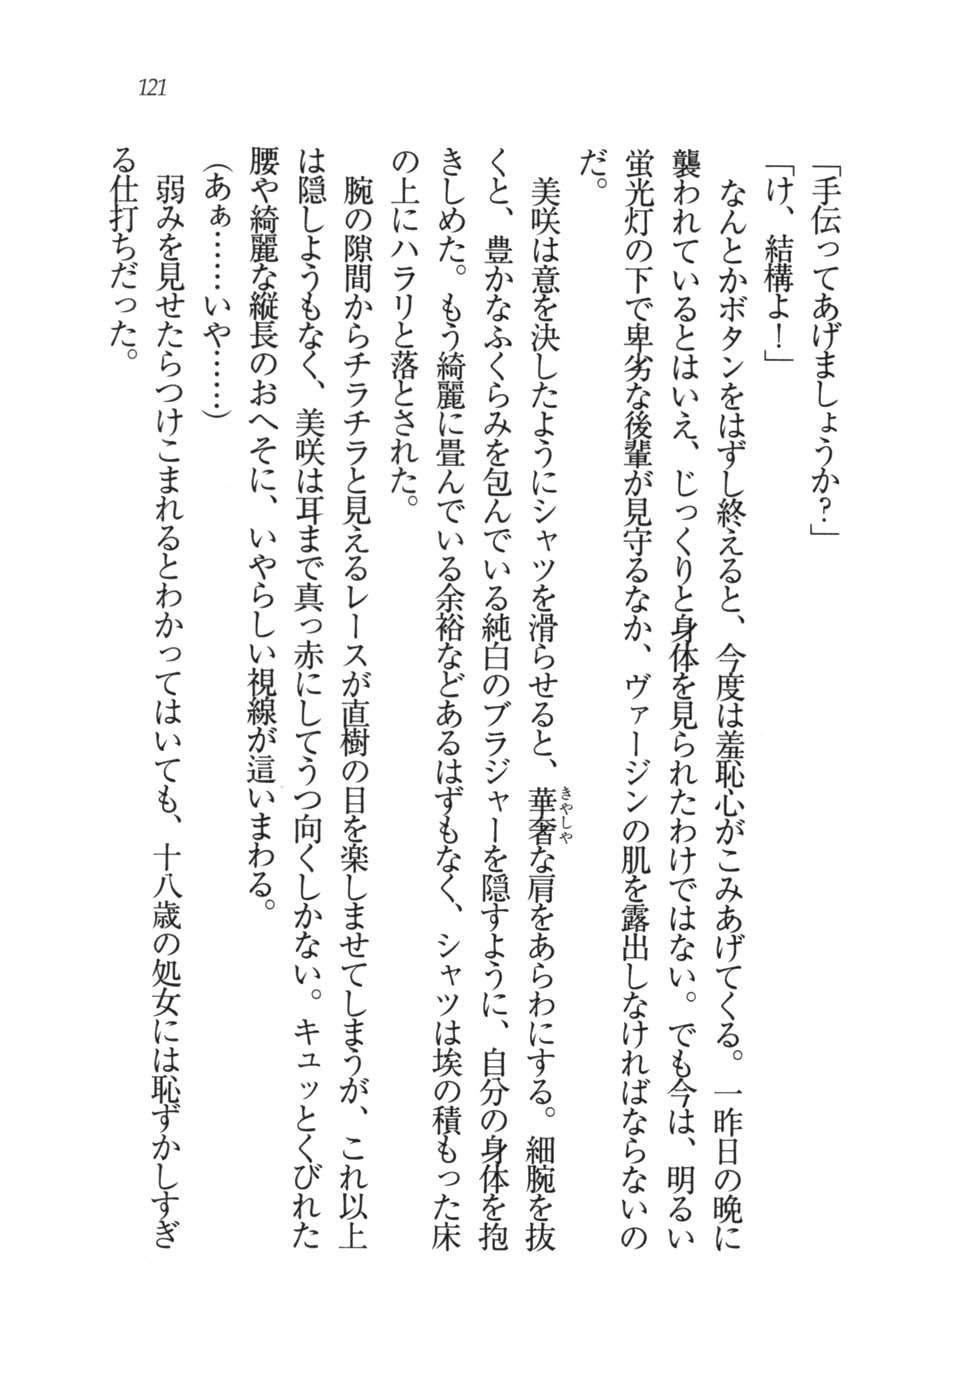 121
「手伝ってあげましょうか?」
「け、結構よ!」
なんとかボタンをはずし終えると、今度は羞恥心がこみあげてくる。一昨日の晩に
襲われているとはいえ、じっくりと身体を見られたわけではない。でも今は、明るい
蛍光灯の下で卑劣な後輩が見守るなか、ヴァージンの肌を露出しなければならないの
だ。
美咲は意を決したようにシャツを滑らせると、華奢な肩をあらわにする。細腕を抜
きやしや
くと、豊かなふくらみを包んでいる純白のブラジャーを隠すように、自分の身体を抱
きしめた。もう綺麗に畳んでいる余裕などあるはずもなく、シャツは埃の積もった床
の上にハラリと落とされた。
腕の隙間からチラチラと見えるレースが直樹の目を楽しませてしまうが、これ以上
は隠しようもなく、美咲は耳まで真っ赤にしてうつ向くしかない。キュッとくびれた
腰や綺麗な縦長のおへそに、いやらしい視線が這いまわる。
(あぁ……いや……)
弱みを見せたらつけこまれるとわかってはいても、十八歳の処女には恥ずかしすぎ
る仕打ちだった。